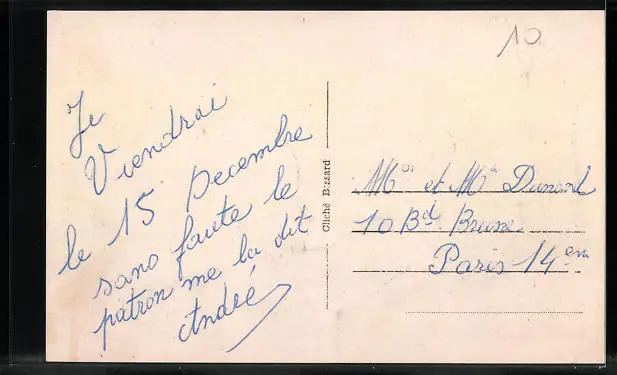 10
Je
Viendrai
le 15 Decembre
sans faute le
patron me la dit
André
Cliché Bessard
Mr et Me Dunard
10 Bd Brune
Paris 14em